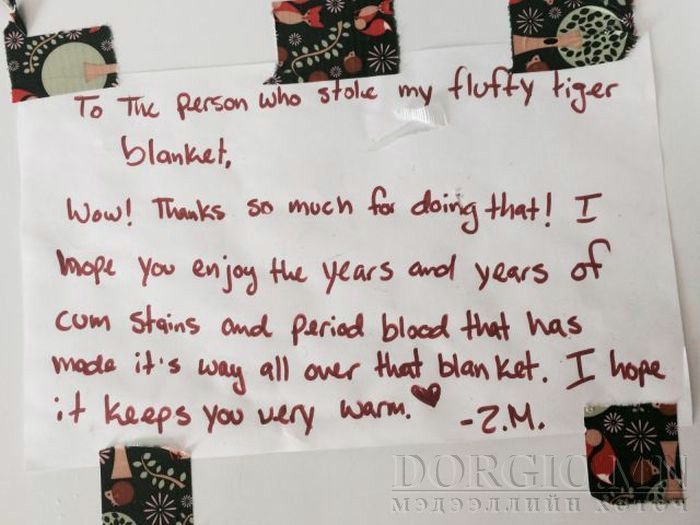 To The person who stole my fluffy tiger
blanket,
Wow! Thanks so much for doing that! I
hope you enjoy the years and years of
cum stains and period blood that has
made it's way all over that blanket. I hope
it keeps you very warm. ♥ -Z.M.
DORGIO.MN
МЭДЭЭЛЛИЙН ХӨТӨЧ